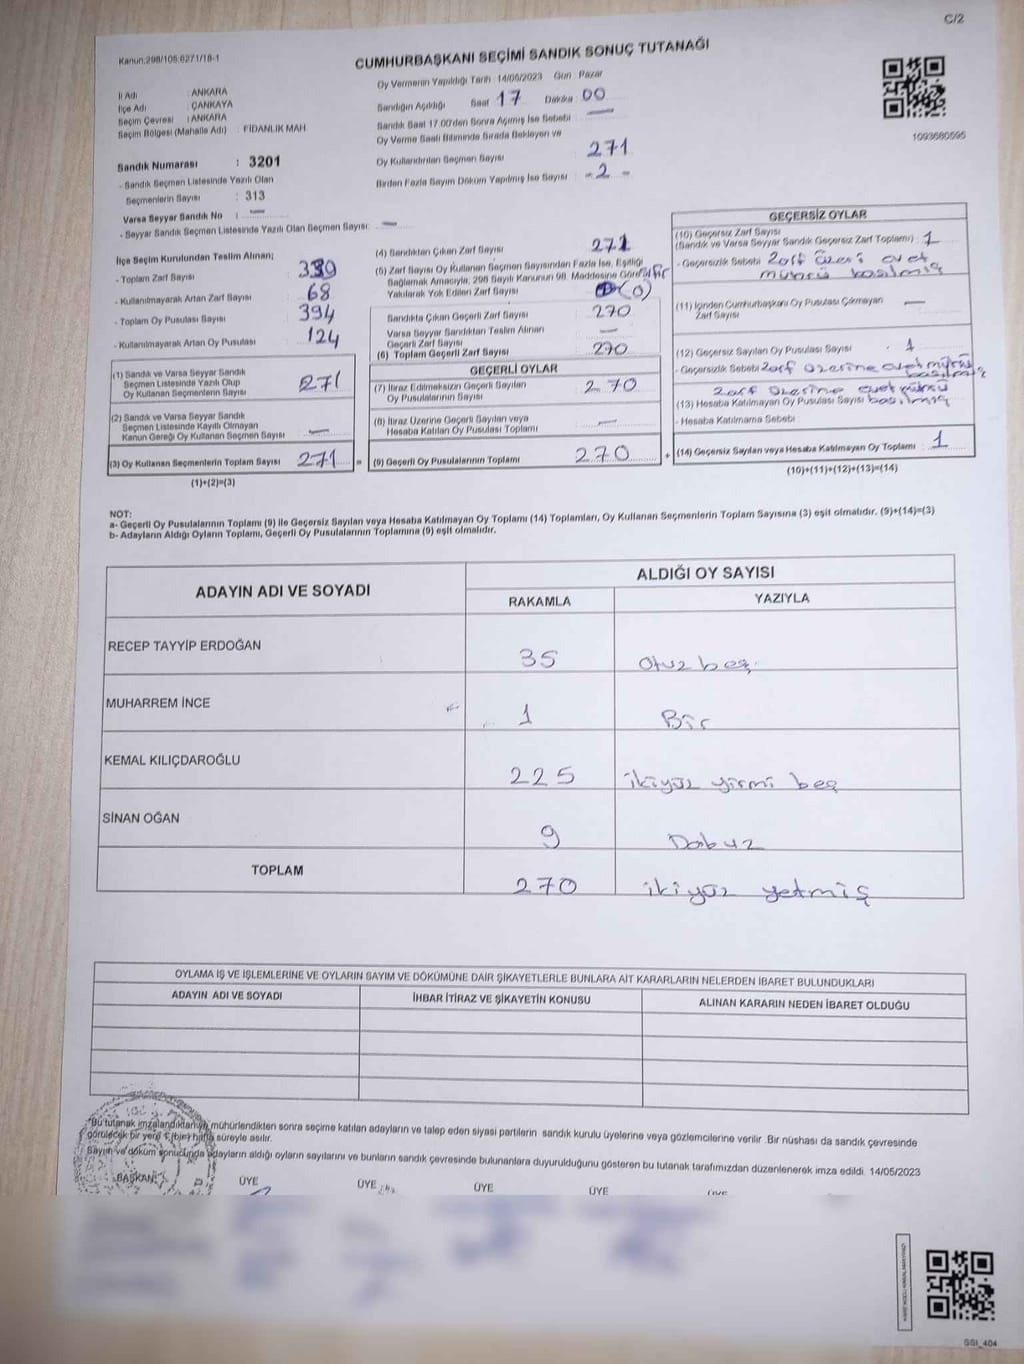 C/2
Kanun:298/105;6271/18-1
CUMHURBAŞKANI SEÇİMİ SANDIK SONUÇ TUTANAĞI
Oy Vermenin Yapıldığı Tarih :14/05/2023 Gün : Pazar
İl Adı : ANKARA
İlçe Adı : ÇANKAYA
Seçim Çevresi : ANKARA
Seçim Bölgesi (Mahalle Adı) : FİDANLIK MAH.
Sandığın Açıldığı Saat 17 Dakika 00
Sandık Saat 17.00'den Sonra Açılmış İse Sebebi : —
Oy Verme Saati Bitiminde Sırada Bekleyen ve
Oy Kullandırılan Seçmen Sayısı 271
Birden Fazla Sayım Döküm Yapılmış İse Sayısı : - 2 -
1093680595
Sandık Numarası : 3201
- Sandık Seçmen Listesinde Yazılı Olan
Seçmenlerin Sayısı : 313
Varsa Seyyar Sandık No : —
- Seyyar Sandık Seçmen Listesinde Yazılı Olan Seçmen Sayısı: —
İlçe Seçim Kurulundan Teslim Alınan;
- Toplam Zarf Sayısı :
- Kullanılmayarak Artan Zarf Sayısı : 68
- Toplam Oy Pusulası Sayısı : 394
- Kullanılmayarak Artan Oy Pusulası : 124
(1) Sandık ve Varsa Seyyar Sandık
Seçmen Listesinde Yazılı Olup
Oy Kullanan Seçmenlerin Sayısı 271
(2) Sandık ve Varsa Seyyar Sandık
Seçmen Listesinde Kayıtlı Olmayan
Kanun Gereği Oy Kullanan Seçmen Sayısı —
(3) Oy Kullanan Seçmenlerin Toplam Sayısı 271 =
(1)+(2)=(3)
(4) Sandıktan Çıkan Zarf Sayısı : 271
(5) Zarf Sayısı Oy Kullanan Seçmen Sayısından Fazla İse, Eşitliği
Sağlamak Amacıyla, 298 Sayılı Kanunun 98. Maddesine Göre
Yakılarak Yok Edilen Zarf Sayısı (0)
Sandıkta Çıkan Geçerli Zarf Sayısı : 270
Varsa Seyyar Sandıktan Teslim Alınan
Geçerli Zarf Sayısı : —
(6) Toplam Geçerli Zarf Sayısı : 270
GEÇERLİ OYLAR
(7) İtiraz Edilmeksizin Geçerli Sayılan
Oy Pusulalarının Sayısı : 270
(8) İtiraz Üzerine Geçerli Sayılan veya
Hesaba Katılan Oy Pusulası Toplamı : —
(9) Geçerli Oy Pusulalarının Toplamı : 270 +
GEÇERSİZ OYLAR
(10) Geçersiz Zarf Sayısı
(Sandık ve Varsa Seyyar Sandık Geçersiz Zarf Toplamı) : 1
- Geçersizlik Sebebi Zarf üzeri evet
mührü basılmış
(11) İçinden Cumhurbaşkanı Oy Pusulası Çıkmayan
Zarf Sayısı : —
(12) Geçersiz Sayılan Oy Pusulası Sayısı : 1
- Geçersizlik Sebebi Zarf üzerine evet mührü
basılmış
zarf üzerine evet mührü
(13) Hesaba Katılmayan Oy Pusulası Sayısı basılmış
- Hesaba Katılmama Sebebi :
(14) Geçersiz Sayılan veya Hesaba Katılmayan Oy Toplamı : 1
(10)+(11)+(12)+(13)=(14)
NOT:
a- Geçerli Oy Pusulalarının Toplamı (9) ile Geçersiz Sayılan veya Hesaba Katılmayan Oy Toplamı (14) Toplamları, Oy Kullanan Seçmenlerin Toplam Sayısına (3) eşit olmalıdır. (9)+(14)=(3)
b- Adayların Aldığı Oyların Toplamı, Geçerli Oy Pusulalarının Toplamına (9) eşit olmalıdır.
ADAYIN ADI VE SOYADI
ALDIĞI OY SAYISI
RAKAMLA YAZIYLA
RECEP TAYYİP ERDOĞAN 35 otuz beş
MUHARREM İNCE 1 Bir
KEMAL KILIÇDAROĞLU 225 ikiyüz yirmi beş
SİNAN OĞAN 9 Dokuz
TOPLAM 270 ikiyüz yetmiş
OYLAMA İŞ VE İŞLEMLERİNE VE OYLARIN SAYIM VE DÖKÜMÜNE DAİR ŞİKAYETLERLE BUNLARA AİT KARARLARIN NELERDEN İBARET BULUNDUKLARI
ADAYIN ADI VE SOYADI İHBAR İTİRAZ VE ŞİKAYETİN KONUSU ALINAN KARARIN NEDEN İBARET OLDUĞU
"Bu tutanak imzalandıktan ve mühürlendikten sonra seçime katılan adayların ve talep eden siyasi partilerin sandık kurulu üyelerine veya gözlemcilerine verilir. Bir nüshası da sandık çevresinde
görülecek bir yere 1 (bir) hafta süreyle asılır.
Sayım ve döküm sonucunda adayların aldığı oyların sayılarını ve bunların sandık çevresinde bulunanlara duyurulduğunu gösteren bu tutanak tarafımızdan düzenlenerek imza edildi. 14/05/2023
BAŞKAN ÜYE ÜYE ÜYE ÜYE ÜYE
SSI_404